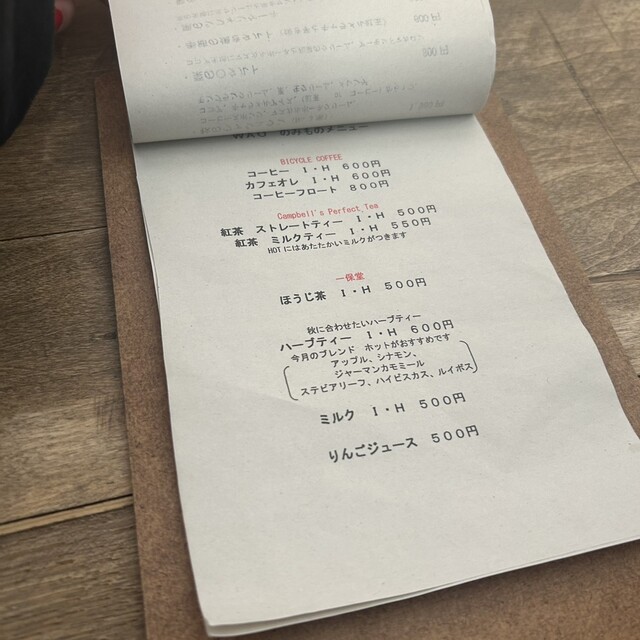 のみものメニュー
BICYCLE COFFEE
コーヒー Ｉ・Ｈ ６００円
カフェオレ Ｉ・Ｈ ６００円
コーヒーフロート ８００円
Campbell's Perfect Tea
紅茶 ストレートティー Ｉ・Ｈ ５００円
紅茶 ミルクティー Ｉ・Ｈ ５５０円
HOTにはあたたかいミルクがつきます
一保堂
ほうじ茶 Ｉ・Ｈ ５００円
秋に合わせたいハーブティー
ハーブティー Ｉ・Ｈ ６００円
今月のブレンド ホットがおすすめです
アップル、シナモン、
ジャーマンカモミール
ステビアリーフ、ハイビスカス、ルイボス
ミルク Ｉ・Ｈ ５００円
りんごジュース ５００円